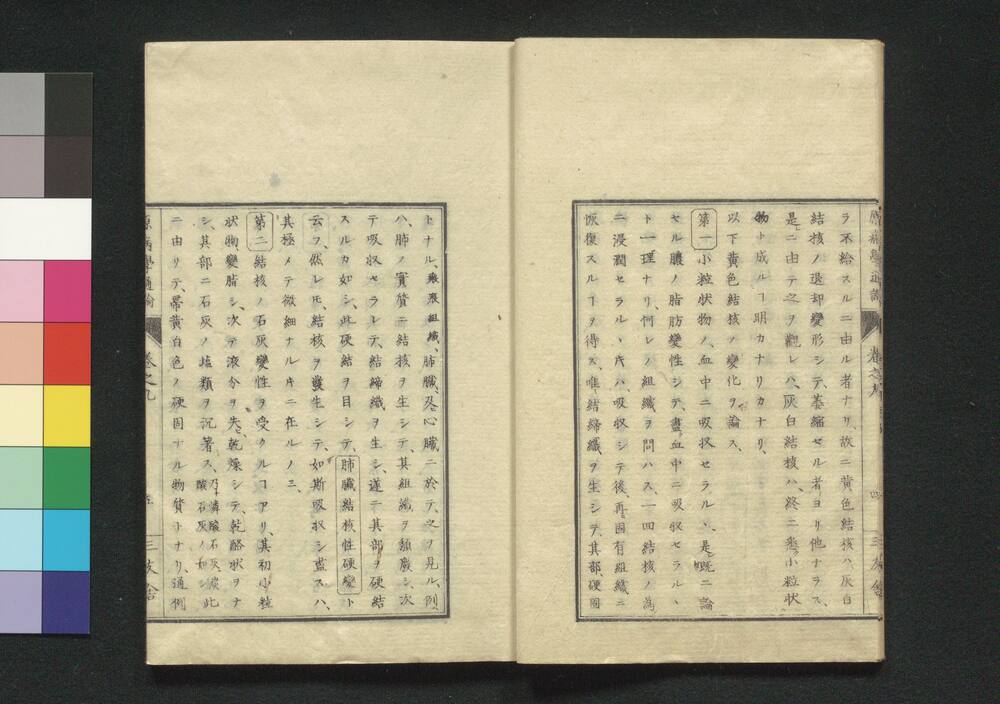 原病學通論 卷之九 四 三友舍
ラ不給スルニ由ル者ナリ、故ニ黄色結核ハ、灰白
結核ノ退却變形シテ、萎縮セル者ヨリ他ナラス、
是ニ由テ之ヲ觀レハ、灰白結核ハ、終ニ悉ク小粒狀
物ト成ルヿ明カナリカナリ、
以下黄色結核ノ變化ヲ論ス、
第一 小粒狀物ノ血中ニ吸収セラルヽ、是既ニ論
セル膿ノ脂肪變性シテ、盡血中ニ吸収セラルヽ
ト一理ナリ何レノ組織ヲ問ハス、一回結核ノ為
ニ浸潤セラルヽ𪜈ハ、吸収シテ後、再固有組織ニ
恢復スルヿヲ得ス、唯結締織ヲ生シテ、其部、硬固
トナル、蜂窠組織、肺臓、及心臓ニ於テ、之ヲ見ル、例
ハ、肺ノ實質ニ結核ヲ生シテ、其組織ヲ頽廢シ、次
テ吸収セラレテ、結締織ヲ生シ、遂ニ其部ヲ硬結
スルカ如シ、此硬結ヲ目シテ、肺臓結核性硬變ト
云フ、然レ𪜈、結核ヲ發生シテ、如斯吸収シ盡スハ、
其極メテ微細ナルキニ在ルノミ、
第二 結核ノ石灰變性ヲ受クルヿアリ、其初小粒
狀物、變脂シ、次テ液分ヲ失ヒ、乾燥シテ、乾酪狀ヲナ
シ、其部ニ石灰ノ塩類ヲ沉著ス、乃チ燐酸石灰、炭酸石灰ノ如シ、此
ニ由リテ、帶黄白色ノ硬固ナル物質トナリ、通例
原病學通論 卷之九 五 三友舍